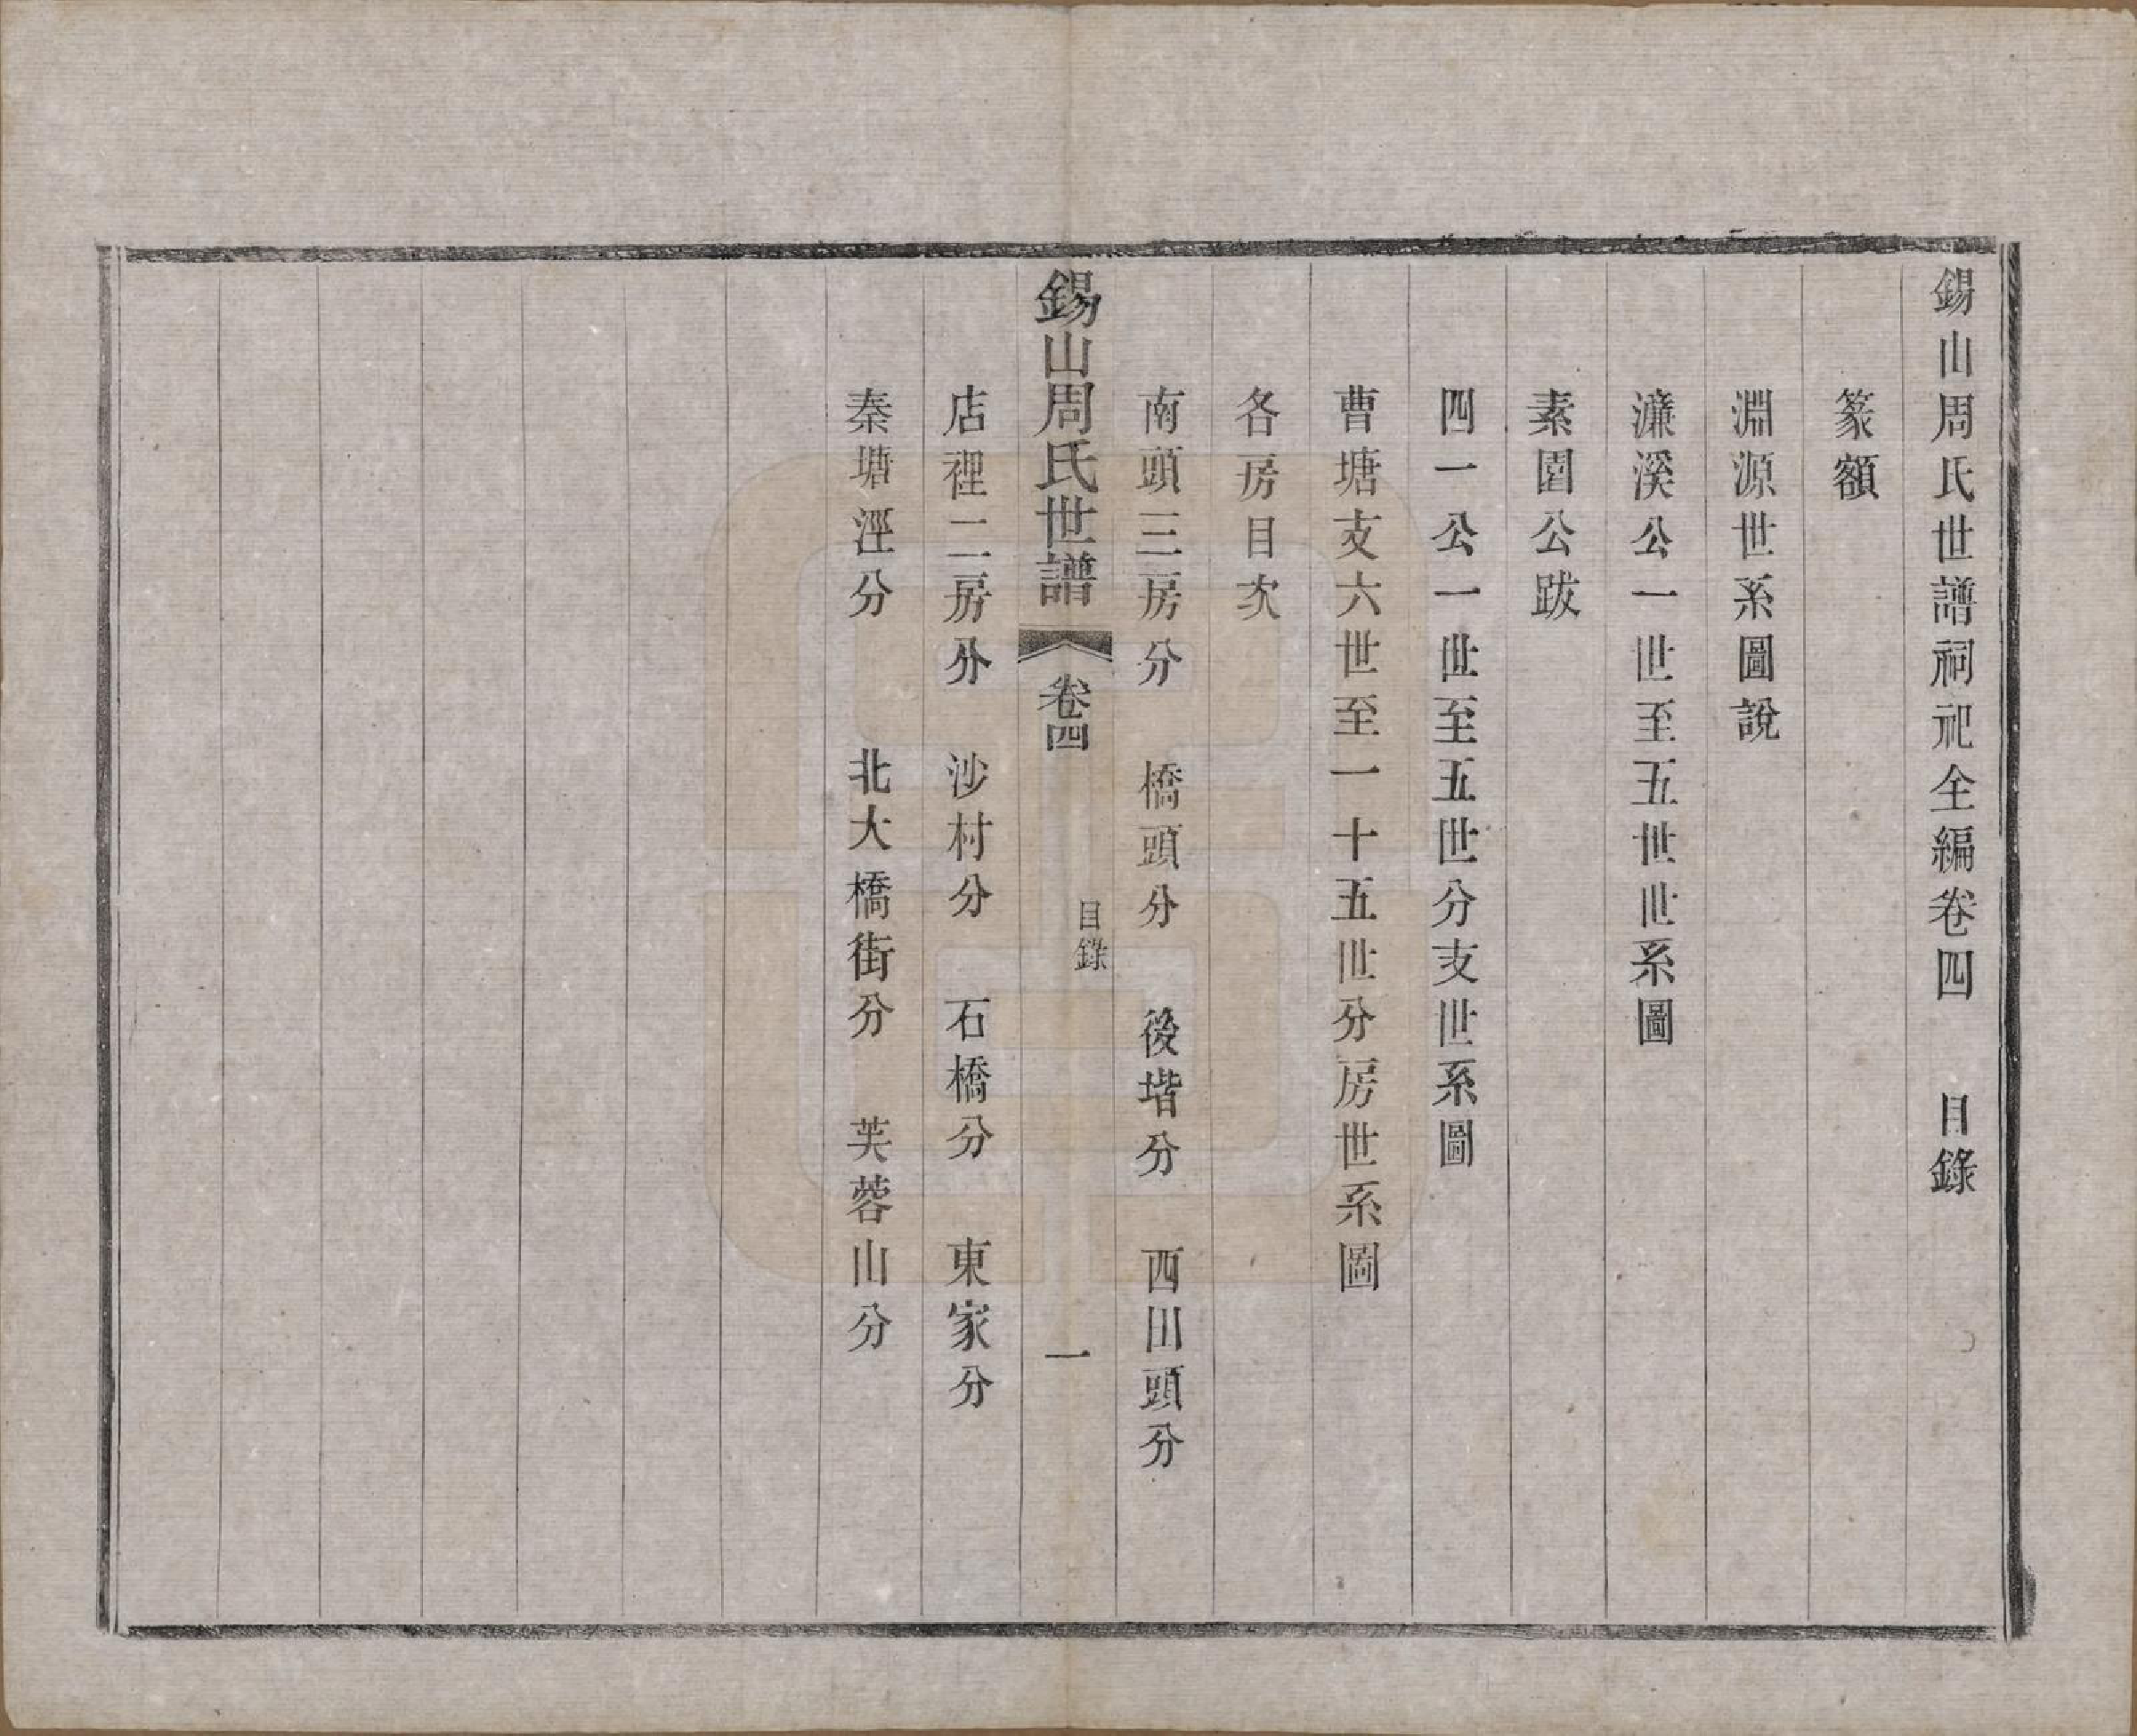 錫山周氏世譜祠祀全編卷四　目錄
篆額
淵源世系圖說
濂溪公一世至五世世系圖
素園公跋
四一公一世至五世分支世系圖
曹塘支六世至一十五世分房世系圖
各房目次
南頭三房分　橋頭分　後堦分　西田頭分
錫山周氏世譜　卷四　目錄　一
店裡二房分　沙村分　石橋分　東家分
秦塘涇分　北大橋街分　芙蓉山分